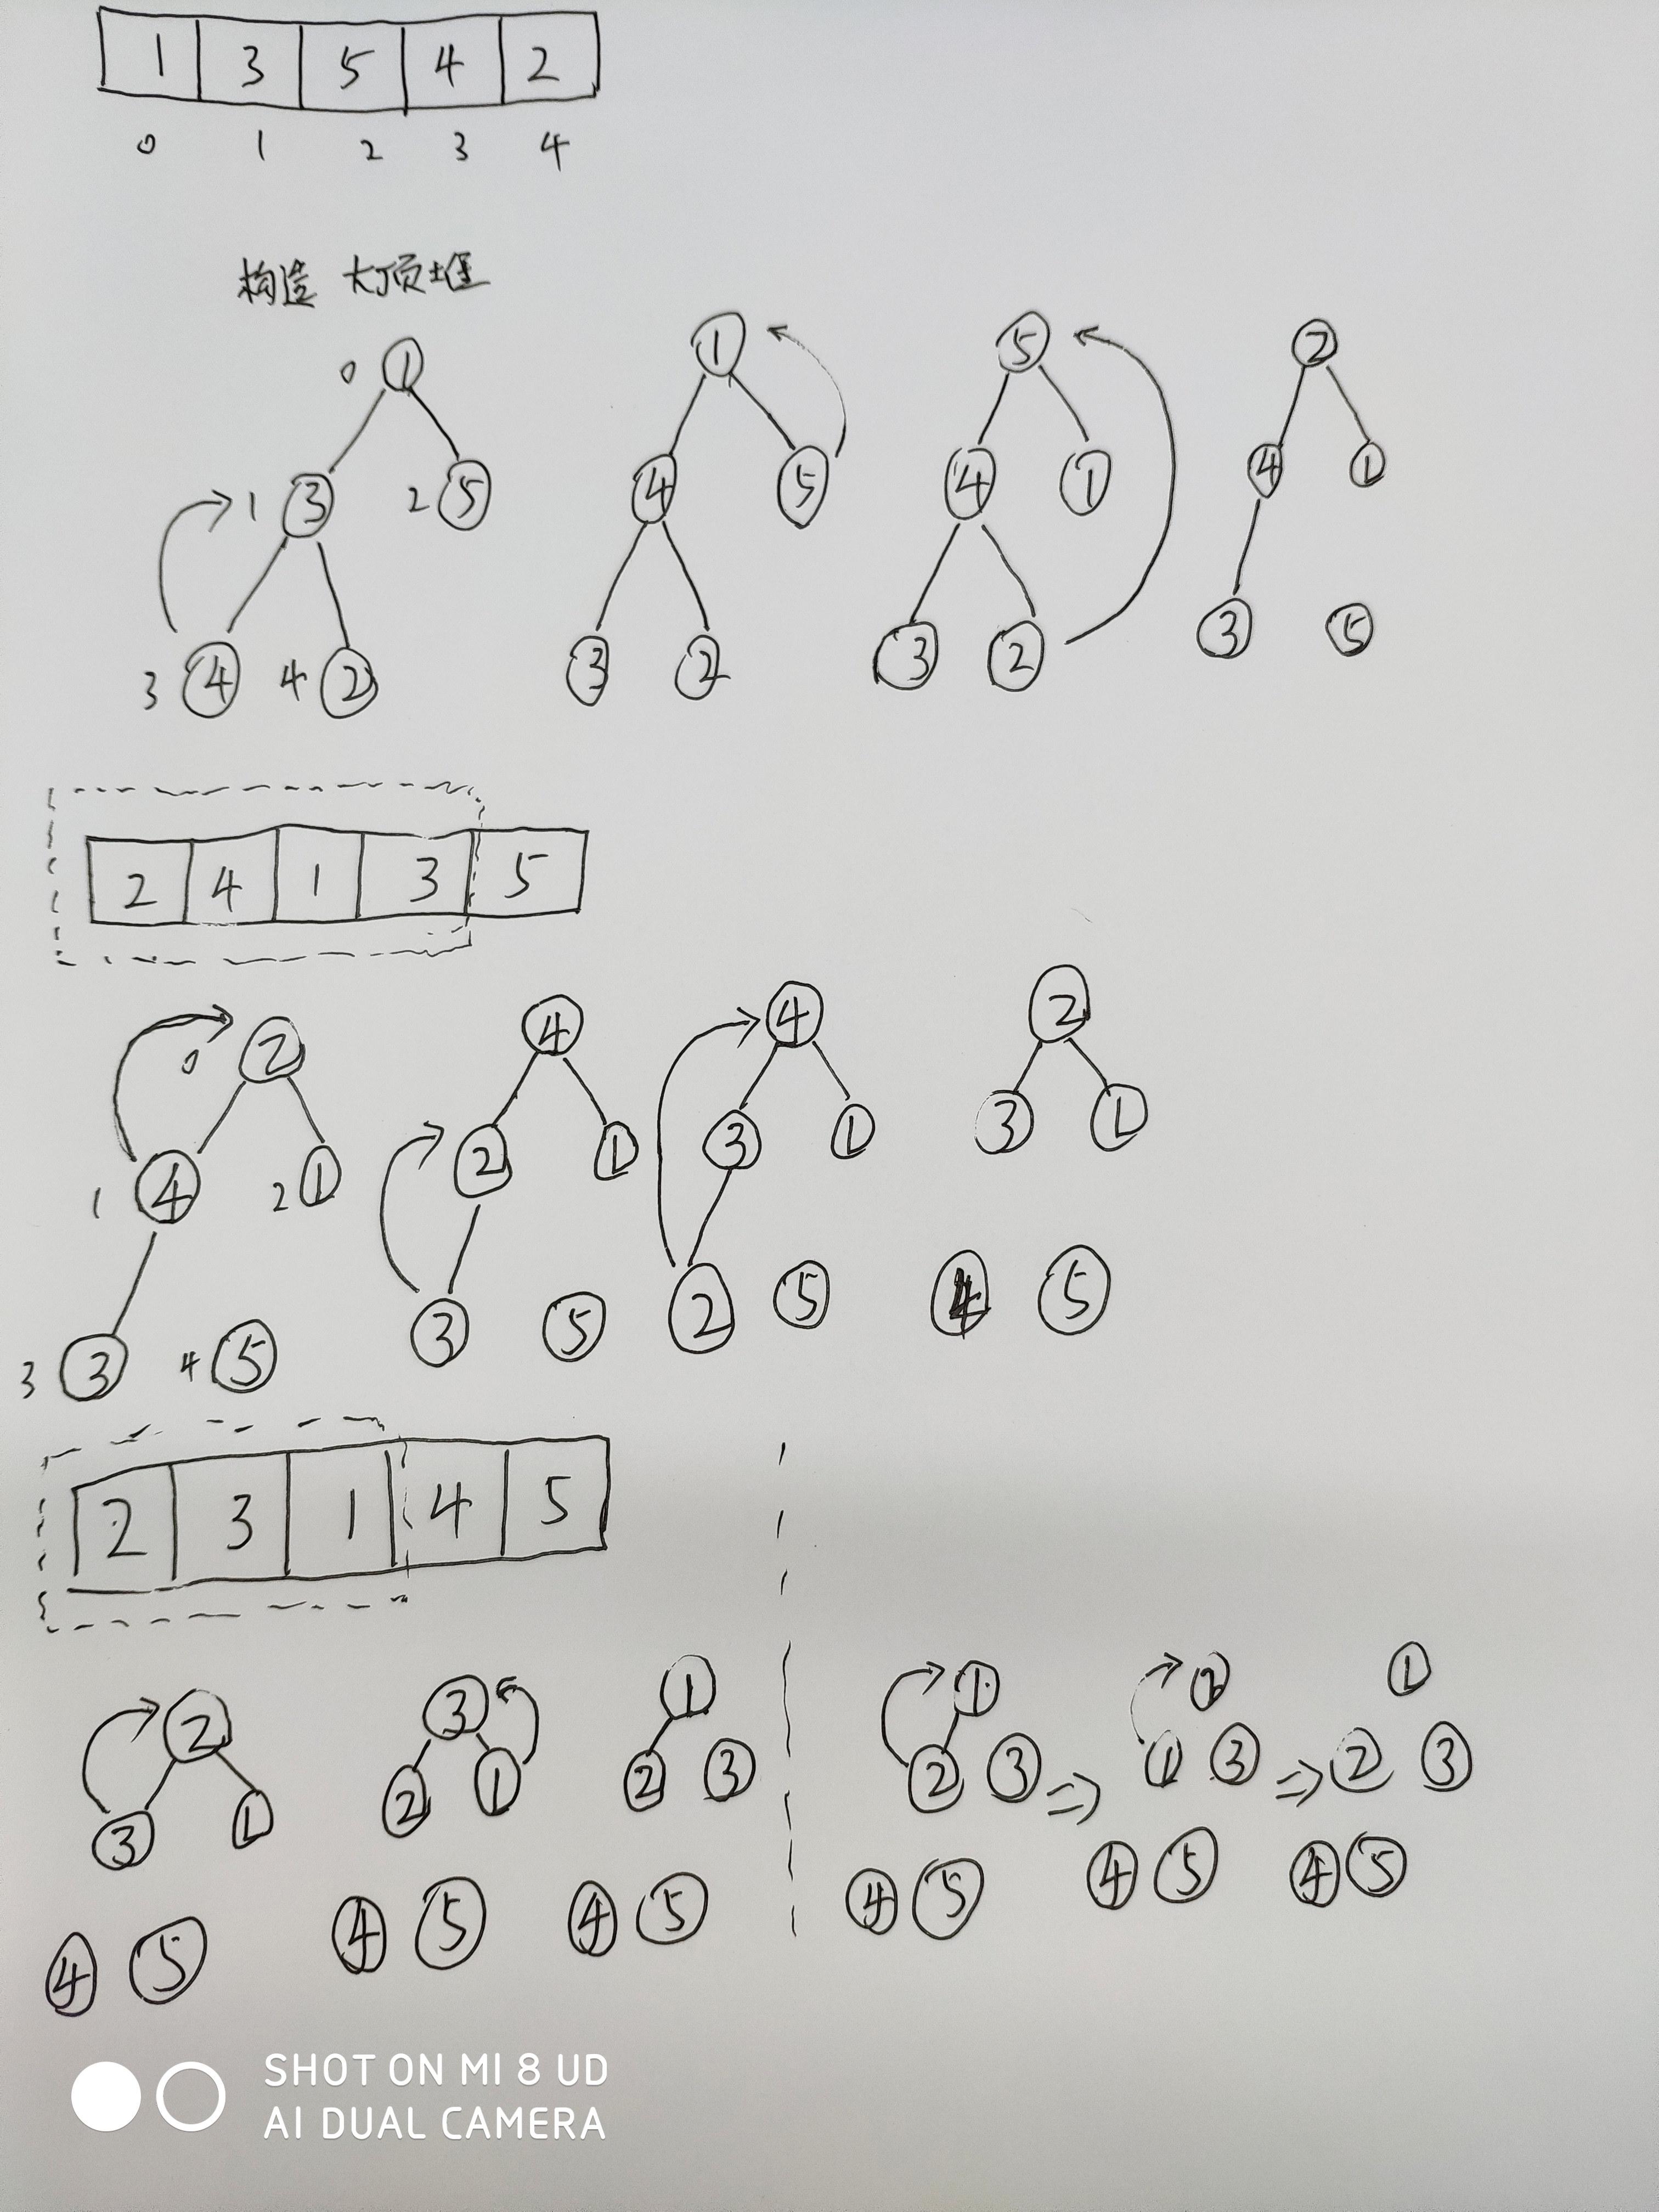 1 3 5 4 2
0 1 2 3 4
构造 大顶堆
0 1 1 5 2
1 3 2 5 4 5 4 1 4 1
3 4 4 2 3 2 3 2 3 5
2 4 1 3 5
0 2 4 4 2
1 4 2 1 2 1 3 1 3 1
3 3 4 5 3 5 2 5 4 5
2 3 1 4 5
2 3 1 1 2 1
3 1 2 1 2 3 2 3 ⇒ 1 3 ⇒ 2 3
4 5 4 5 4 5 4 5 4 5 4 5
SHOT ON MI 8 UD
AI DUAL CAMERA